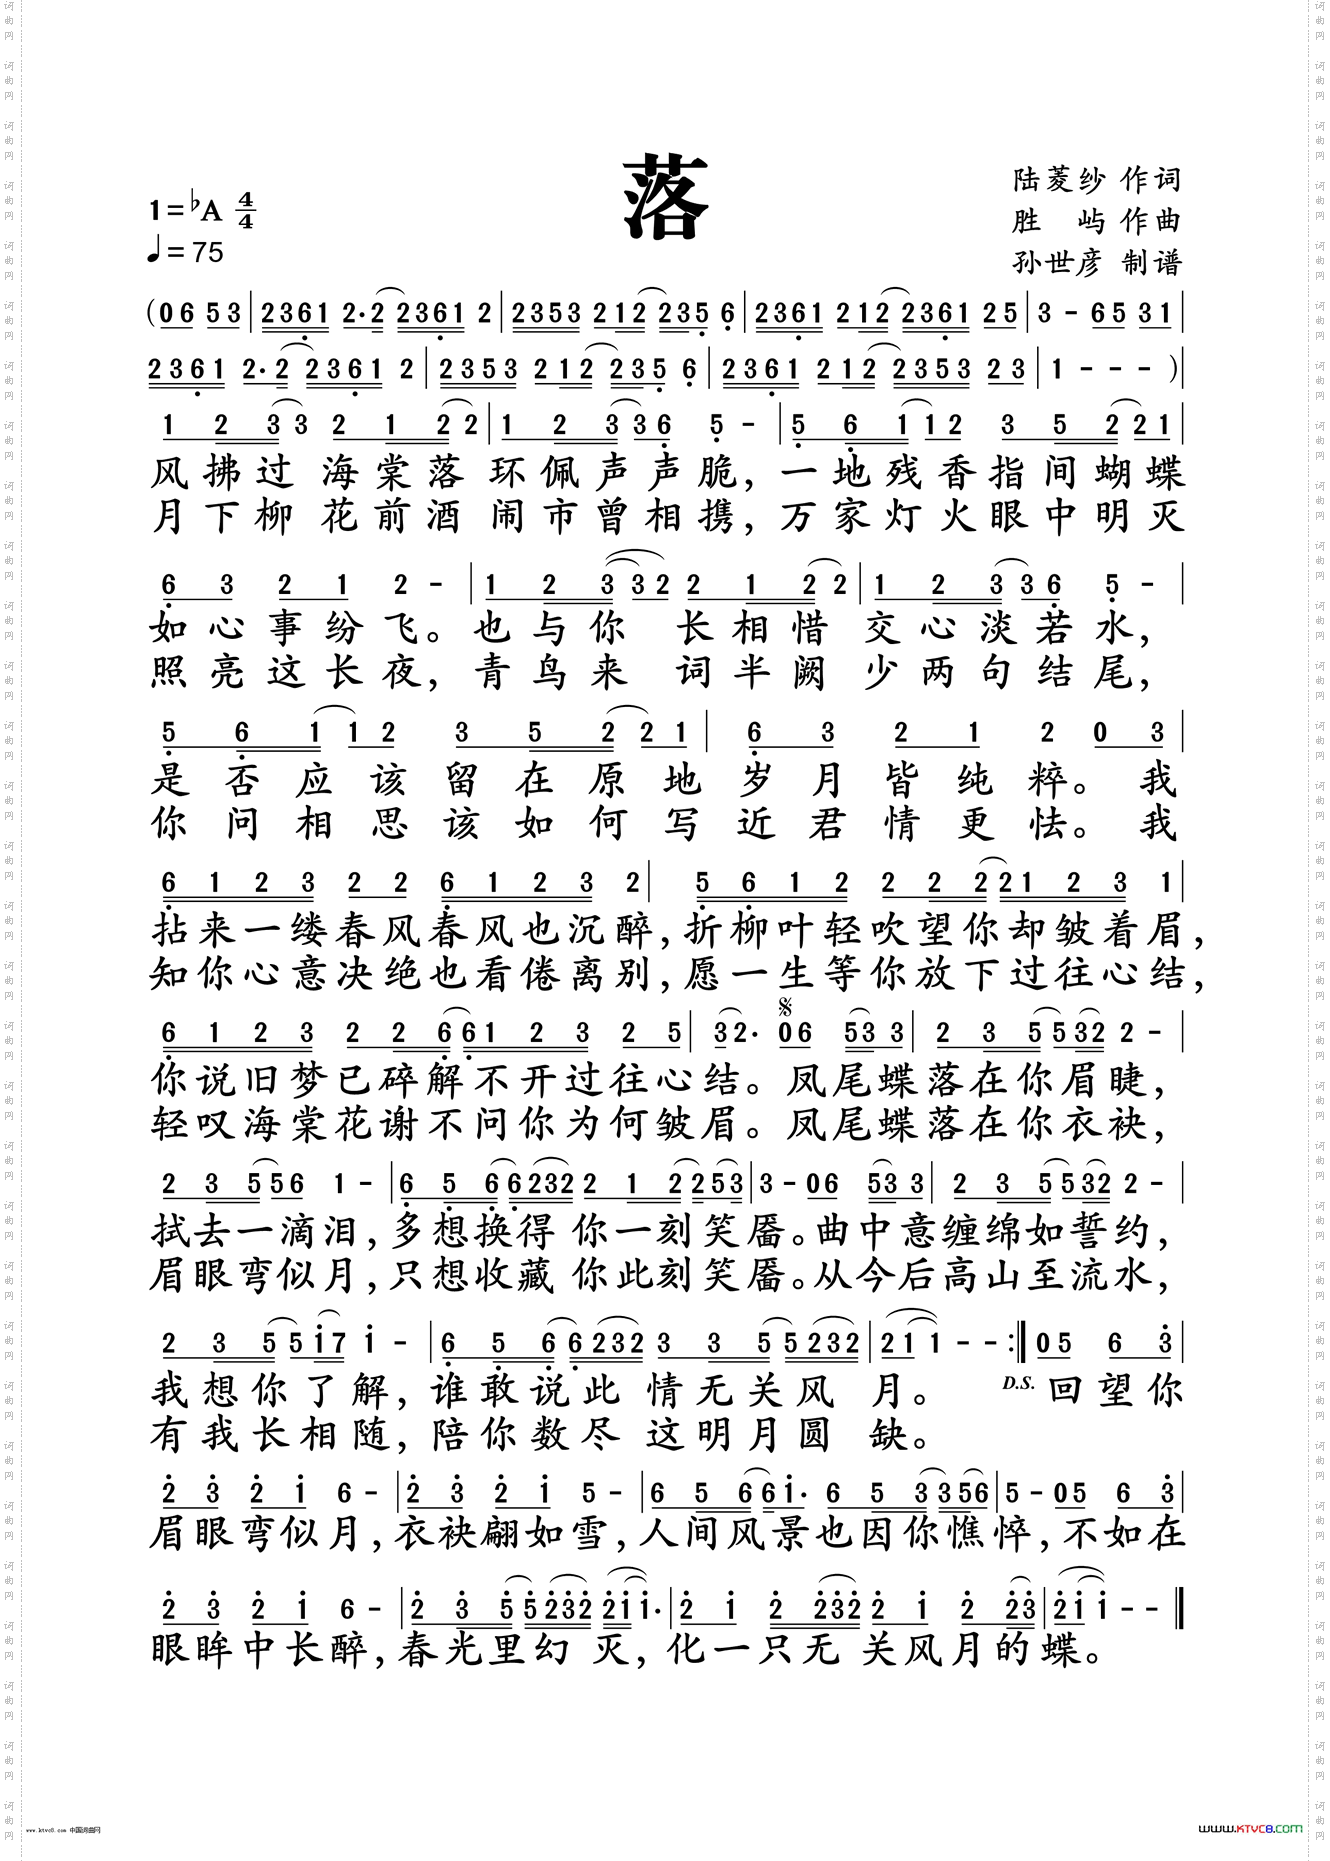 落
陆菱纱 作词
胜 屿 作曲
孙世彦 制谱
1=♭A 4/4
♩=75
(06 53|2361 2·2 2361 2|2353 212 235 6|2361 212 2361 25|3 - 65 31|
2361 2·2 2361 2|2353 212 235 6|2361 212 2353 23|1 - - -)|
1 2 3 3 2 1 2 2|1 2 3 3 6 5 -|5 6 1 1 2 3 5 2 2 1|
风拂过海棠落环佩声声脆，一地残香指间蝴蝶
月下柳花前酒闹市曾相携，万家灯火眼中明灭
6 3 2 1 2 -|1 2 3 3 2 2 1 2 2|1 2 3 3 6 5 -|
如心事纷飞。也与你 长相惜交心淡若水，
照亮这长夜，青鸟来 词半阙少两句结尾，
5 6 1 1 2 3 5 2 2 1|6 3 2 1 2 0 3|
是否应该留在原地岁月皆纯粹。我
你问相思该如何写近君情更怯。我
6 1 2 3 2 2 6 1 2 3 2|5 6 1 2 2 2 2 2 1 2 3 1|
拈来一缕春风春风也沉醉，折柳叶轻吹望你却皱着眉，
知你心意决绝也看倦离别，愿一生等你放下过往心结，
6 1 2 3 2 2 6 6 1 2 3 2 5|3 2· 06 53 3|2 3 5 5 3 2 2 -|
你说旧梦已碎解不开过往心结。凤尾蝶落在你眉睫，
轻叹海棠花谢不问你为何皱眉。凤尾蝶落在你衣袂，
2 3 5 5 6 1 -|6 5 6 6 2 3 2 2 1 2 2 5 3|3 - 06 53 3|2 3 5 5 3 2 2 -|
拭去一滴泪，多想换得 你一刻笑靥。曲中意缠绵如誓约，
眉眼弯似月，只想收藏 你此刻笑靥。从今后高山至流水，
2 3 5 5 1 7 1 -|6 5 6 6 2 3 2 3 3 5 5 2 3 2|2 1 1 - - :|05 6 3|
我想你了解，谁敢说此 情无关风 月。 D.S. 回望你
有我长相随，陪你数尽 这明月圆 缺。
2 3 2 1 6 -|2 3 2 1 5 -|6 5 6 6 1· 6 5 3 3 5 6|5 - 05 6 3|
眉眼弯似月，衣袂翩如雪，人间风景也因你憔悴，不如在
2 3 2 1 6 -|2 3 5 5 2 3 2 2 1 1·|2 1 2 2 3 2 2 1 2 2 3|2 1 1 - -|
眼眸中长醉，春光里幻 灭，化一只无 关风月的蝶。
www.ktvc8.com 中国词曲网
www.KTVC8.com